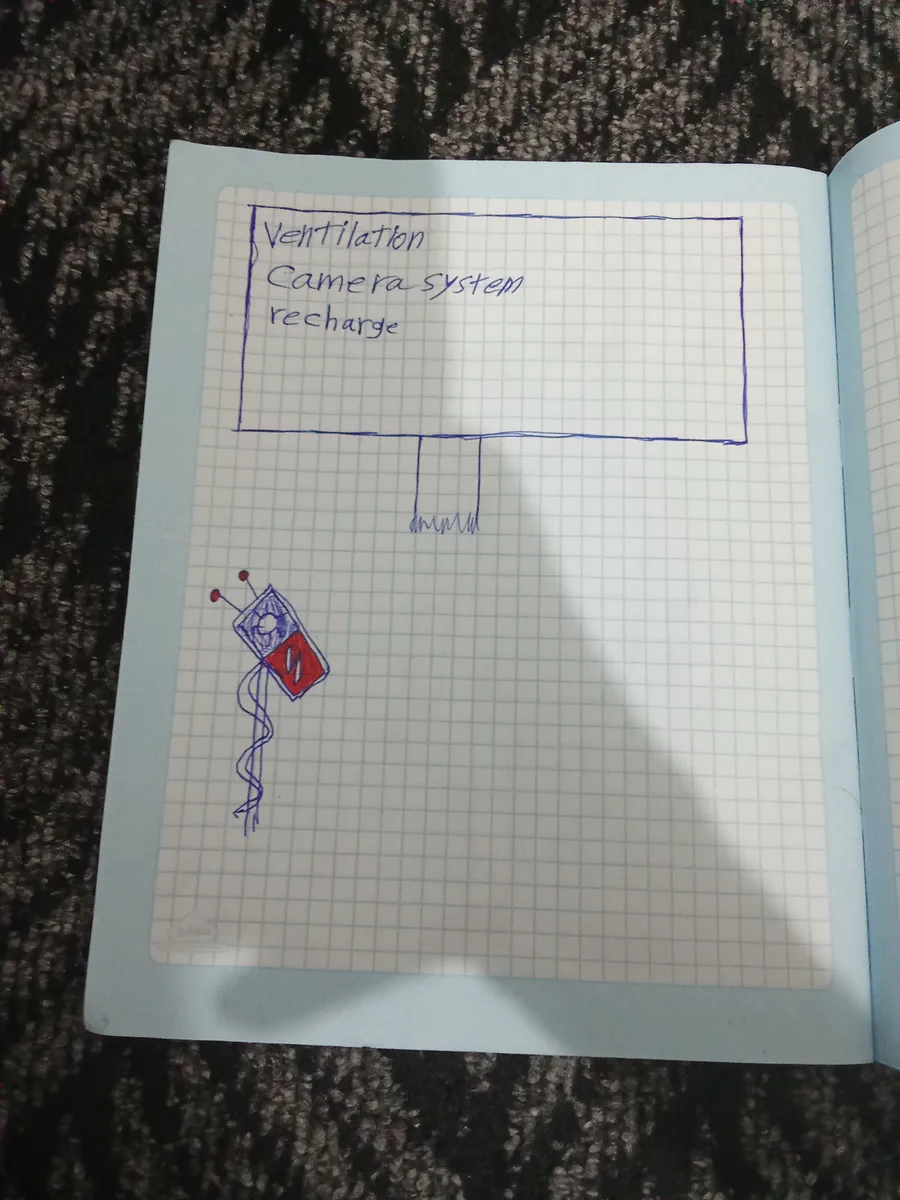 Ventilation
Camera system
recharge